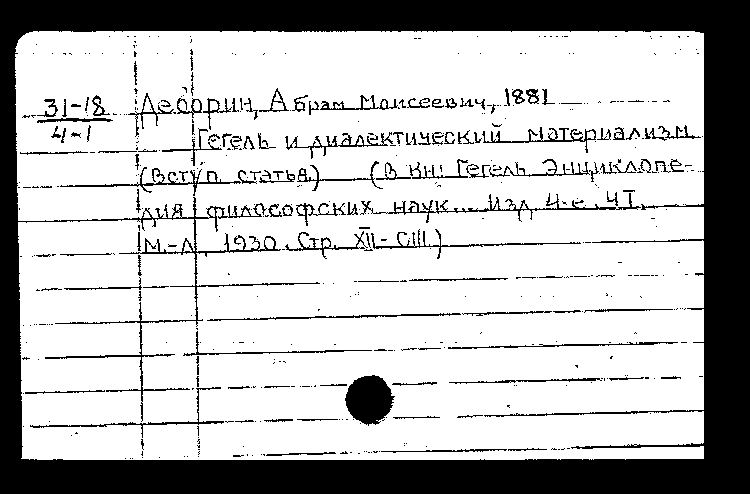 31-18
4-1
Деборин, Абрам Моисеевич, 1881
Гегель и диалектический материализм
(Вступ. статья.) (В кн: Гегель Энциклопе-
дия философских наук... Изд. 4-е. ч I.
М.-Л, 1930. Стр. XII-CIII.)